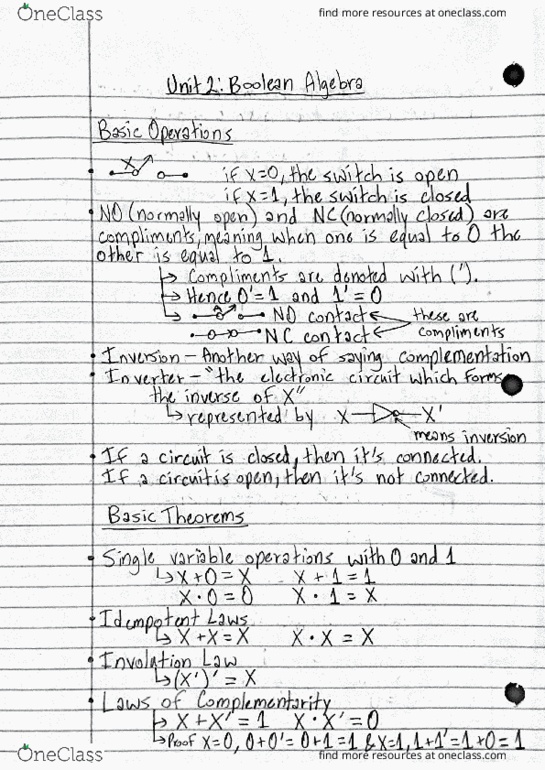 OneClass find more resources at oneclass.com
Unit 2: Boolean Algebra
Basic Operations
• X if X=0, the switch is open
if X=1, the switch is closed
• NO (normally open) and NC (normally closed) are
compliments, meaning when one is equal to 0 the
other is equal to 1.
↳ Compliments are denoted with (').
↳ Hence 0'=1 and 1'=0
↳ NO contact these are
NC contact compliments
• Inversion - Another way of saying complementation
• Inverter - "the electronic circuit which forms
the inverse of X"
↳ represented by X X'
means inversion
• If a circuit is closed, then it's connected.
If a circuit is open, then it's not connected.
Basic Theorems
• Single variable operations with 0 and 1
↳ X+0=X X+1=1
X·0=0 X·1=X
• Idempotent Laws
↳ X+X=X X·X=X
• Involution Law
↳ (X')'=X
• Laws of Complementarity
↳ X+X'=1 X·X'=0
↳ Proof X=0, 0+0'=0+1=1 & X=1, 1+1'=1+0=1
OneClass find more resources at oneclass.com